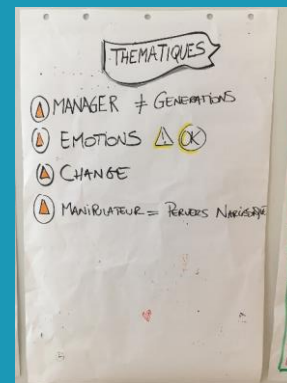 THEMATIQUES
MANAGER ≠ GENERATIONS
EMOTIONS ⚠ OK
CHANGE
MANIPULATEUR = PERVERS NARCISSIQUE